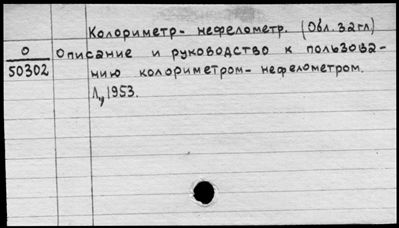 Колориметр-нефелометр. (Обл. загл)
О
50302
Описание и руководство к пользова-
нию колориметром-нефелометром.
Л., 1953.